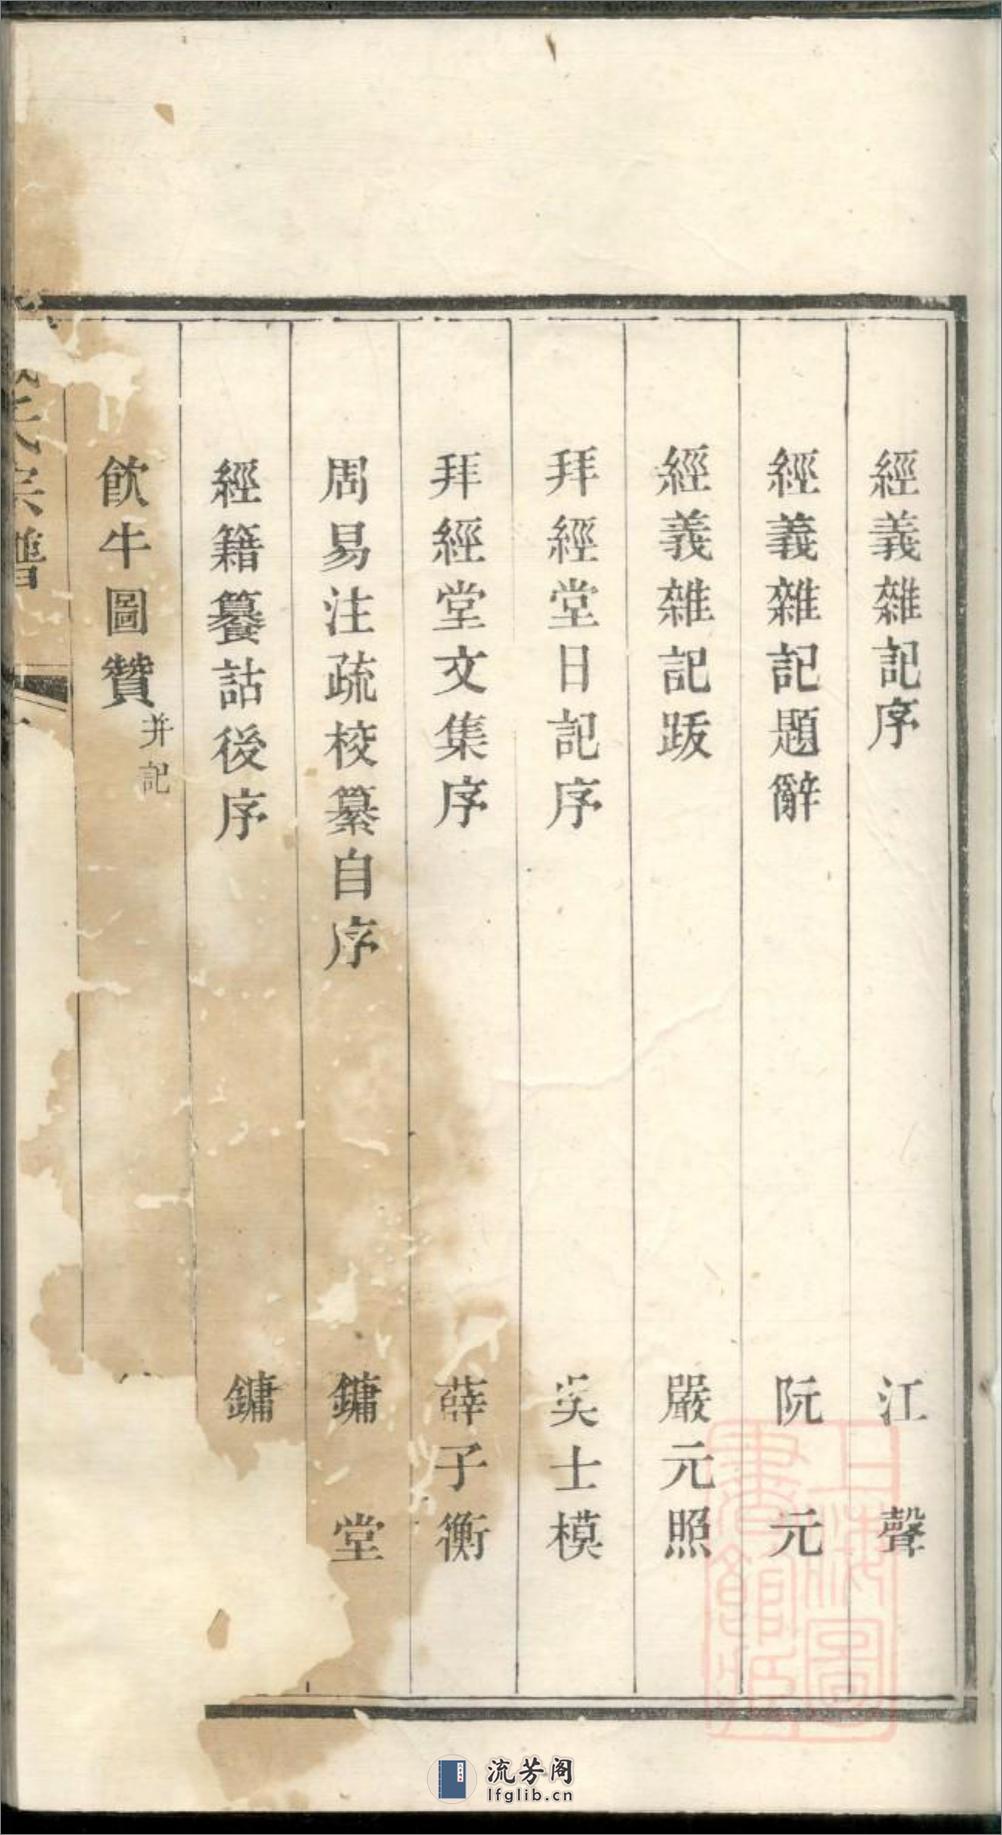 經義雜記序 江聲
經義雜記題辭 阮元
經義雜記跋 嚴元照
拜經堂日記序 吳士模
拜經堂文集序 薛子衡
周易注疏校纂自序 鏞堂
經籍籑詁後序 鏞
飲牛圖贊 并記
氏宗譜
上海圖書館藏
流芳阁
lfglib.cn